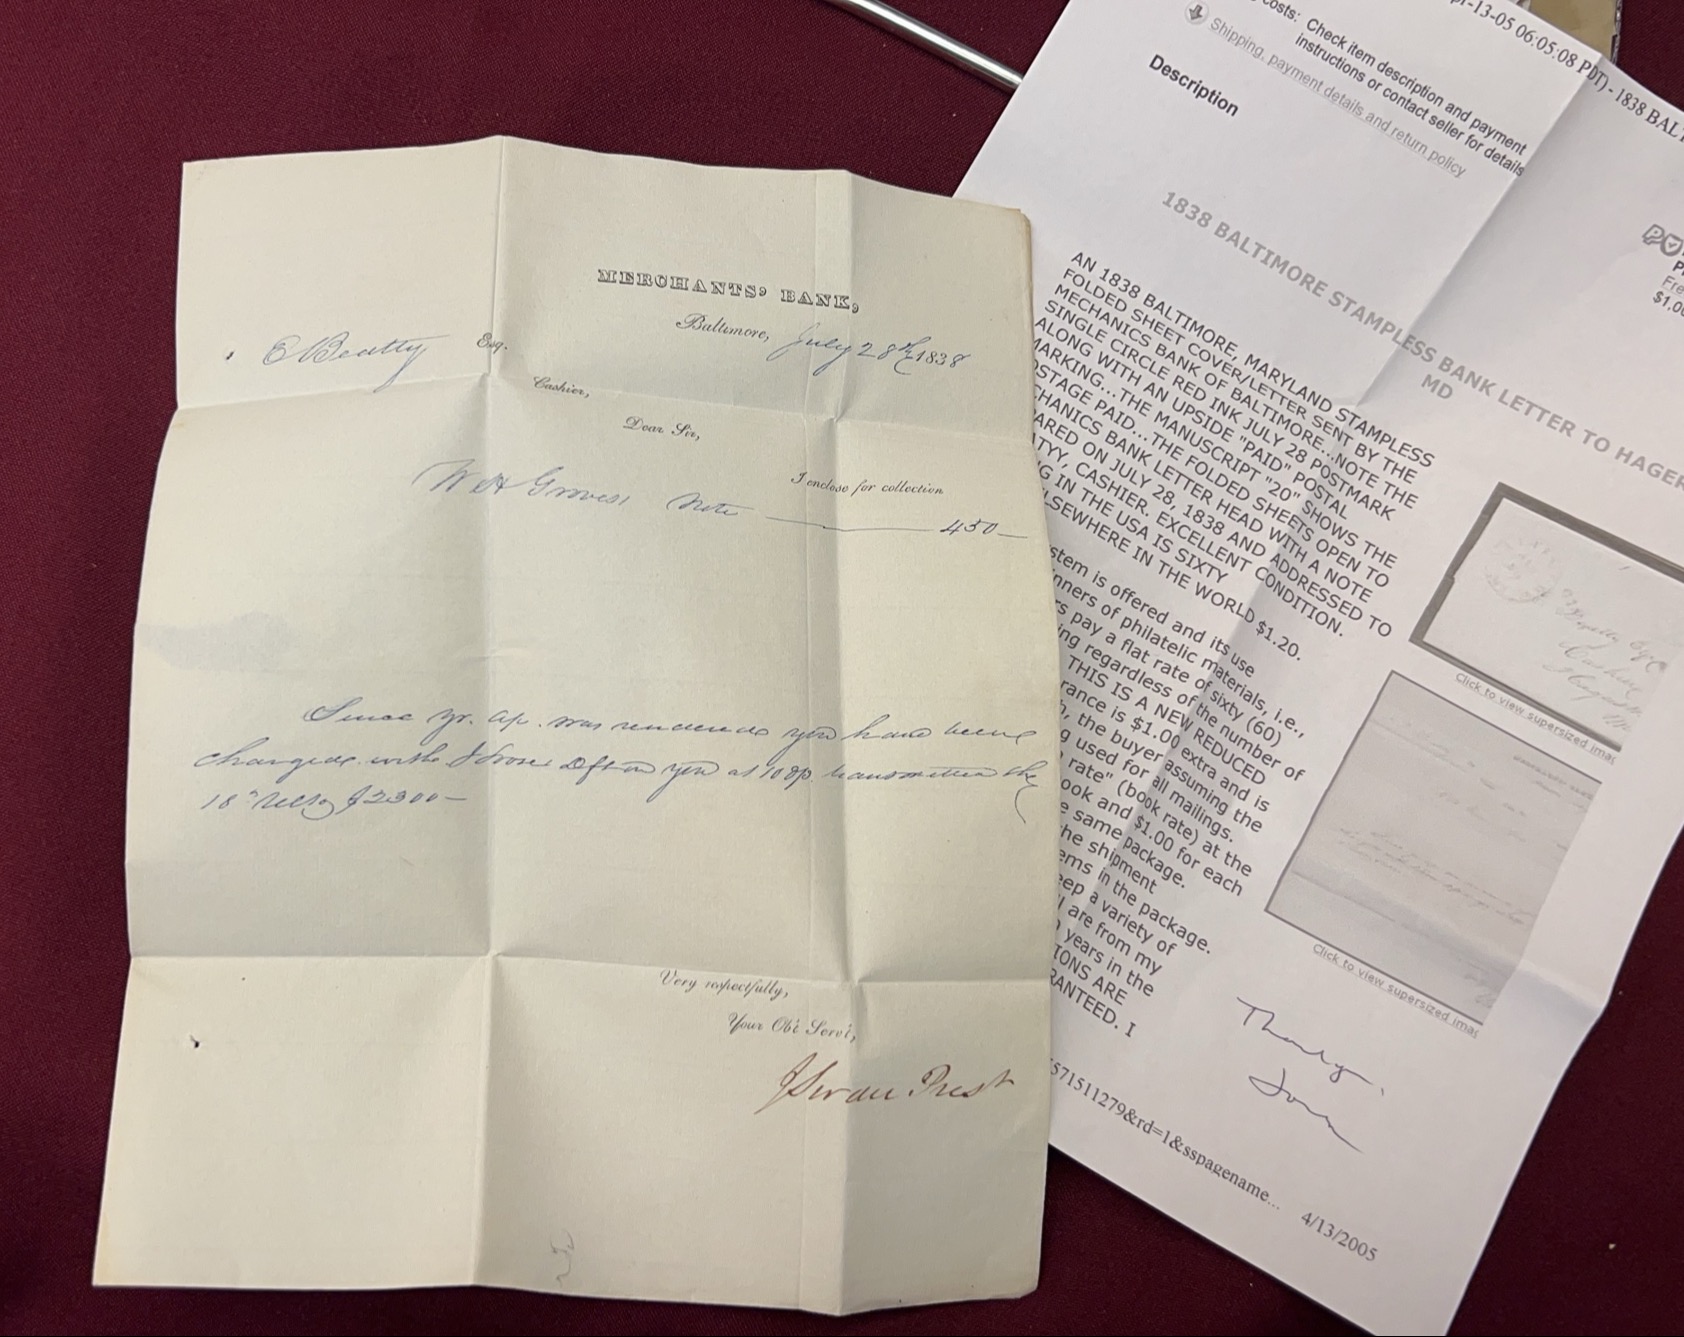 MERCHANTS' BANK,
Baltimore, July 28th 1838
E Beatty Esq.
Cashier,
Dear Sir,
I enclose for collection
W H Groves' Note 450
Since yr. ap. was rendered you have been
charged with Dft on you at transmitted the
$2300
Very respectfully,
Your Ob't Serv't,
J Swan Prest
pr-13-05 06:05:08 PDT) - 1838 BAL
costs: Check item description and payment
instructions or contact seller for details
Shipping, payment details and return policy
Description
1838 BALTIMORE STAMPLESS BANK LETTER TO HAGER
MD
$1.00
AN 1838 BALTIMORE, MARYLAND STAMPLESS
FOLDED SHEET COVER/LETTER SENT BY THE
MECHANICS BANK OF BALTIMORE...NOTE THE
SINGLE CIRCLE RED INK JULY 28 POSTMARK
ALONG WITH AN UPSIDE "PAID" POSTAL
MARKING...THE MANUSCRIPT "20" SHOWS THE
OSTAGE PAID...THE FOLDED SHEETS OPEN TO
CHANICS BANK LETTER HEAD WITH A NOTE
ARED ON JULY 28, 1838 AND ADDRESSED TO
TYY, CASHIER. EXCELLENT CONDITION.
G IN THE USA IS SIXTY
LSEWHERE IN THE WORLD $1.20.
stem is offered and its use
inners of philatelic materials, i.e.,
rs pay a flat rate of sixty (60)
ing regardless of the number of
THIS IS A NEW REDUCED
rance is $1.00 extra and is
, the buyer assuming the
g used for all mailings.
rate" (book rate) at the
ook and $1.00 for each
e same package.
he shipment
ems in the package.
eep a variety of
l are from my
years in the
IONS ARE
RANTEED. I
Click to view supersized imag
Click to view supersized imag
571511279&rd=1&sspagename...
4/13/2005